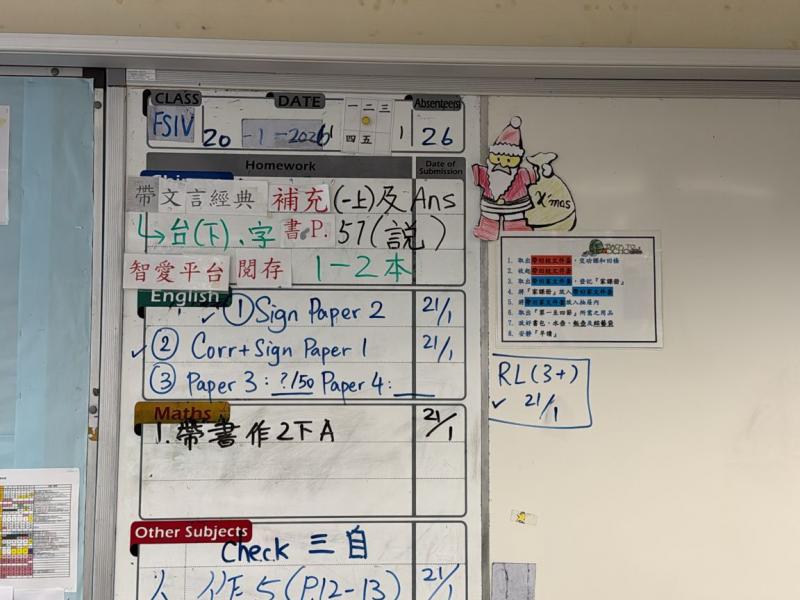 CLASS DATE 一 二 三 Absenteers
FSIV 20 -1-2026 四 五 1 26
Homework Date of Submission
帶文言經典 補充(一上)及Ans
↳台(下).字 書P. 57(説)
智愛平台 閱存 1-2本
English
✓ ①Sign Paper 2 21/1
✓ ② Corr+Sign Paper 1 21/1
③ Paper 3: ?/50 Paper 4: ___
Maths
1. 帶書作2下A 21/1
Other Subjects
Check 三自
作5(P.12-13) 21/1
X'mas
1. 取出
2. 收起
3. 取出 登記『家課冊』
4. 將『家課冊』放入
5. 放入抽屜內
6. 取出『第一至四節』所需之用品
7. 放好書包、水壺、
8. 安靜『早讀』
RL(3+)
✓ 21/1